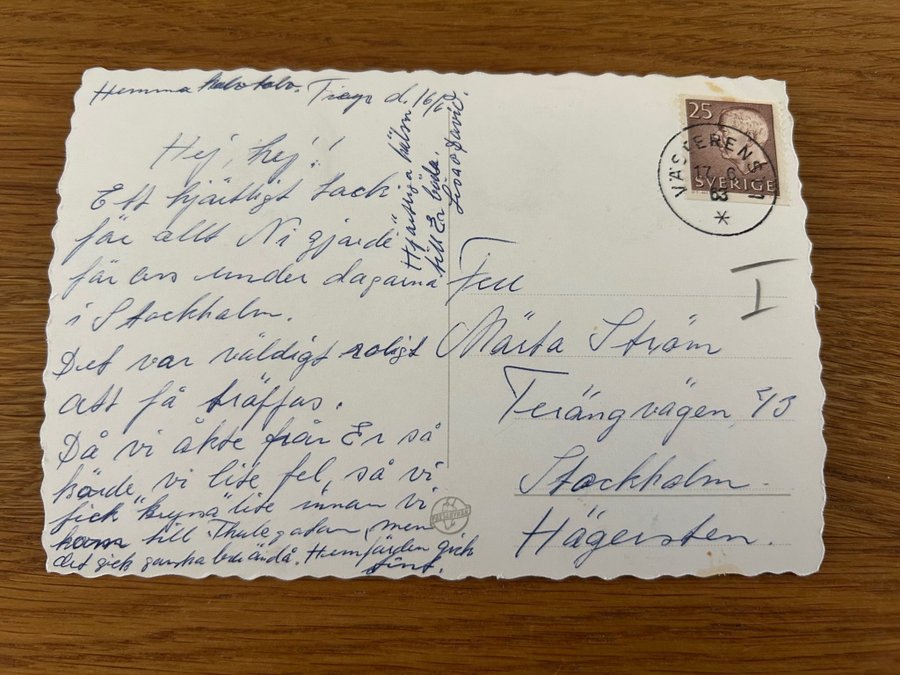 Hemma d. 16/6
Hej, hej!!
Ett hjärtligt tack
för allt Ni gjorde
för oss under dagarna
i Stockholm.
Det var väldigt roligt
att få träffas.
Då vi åkte från Er så
körde vi lite fel, så vi
fick "kryssa" lite innan vi
kom till Thulegatan, men
det gick ganska bra ändå. Hemfärden gick
fint.
Hjärtliga hälsn
till Er båda.
David.
25
SVERIGE
17. 6
63
Fru
Märta Ström
Terängvägen
Stockholm.
Hägersten.
I